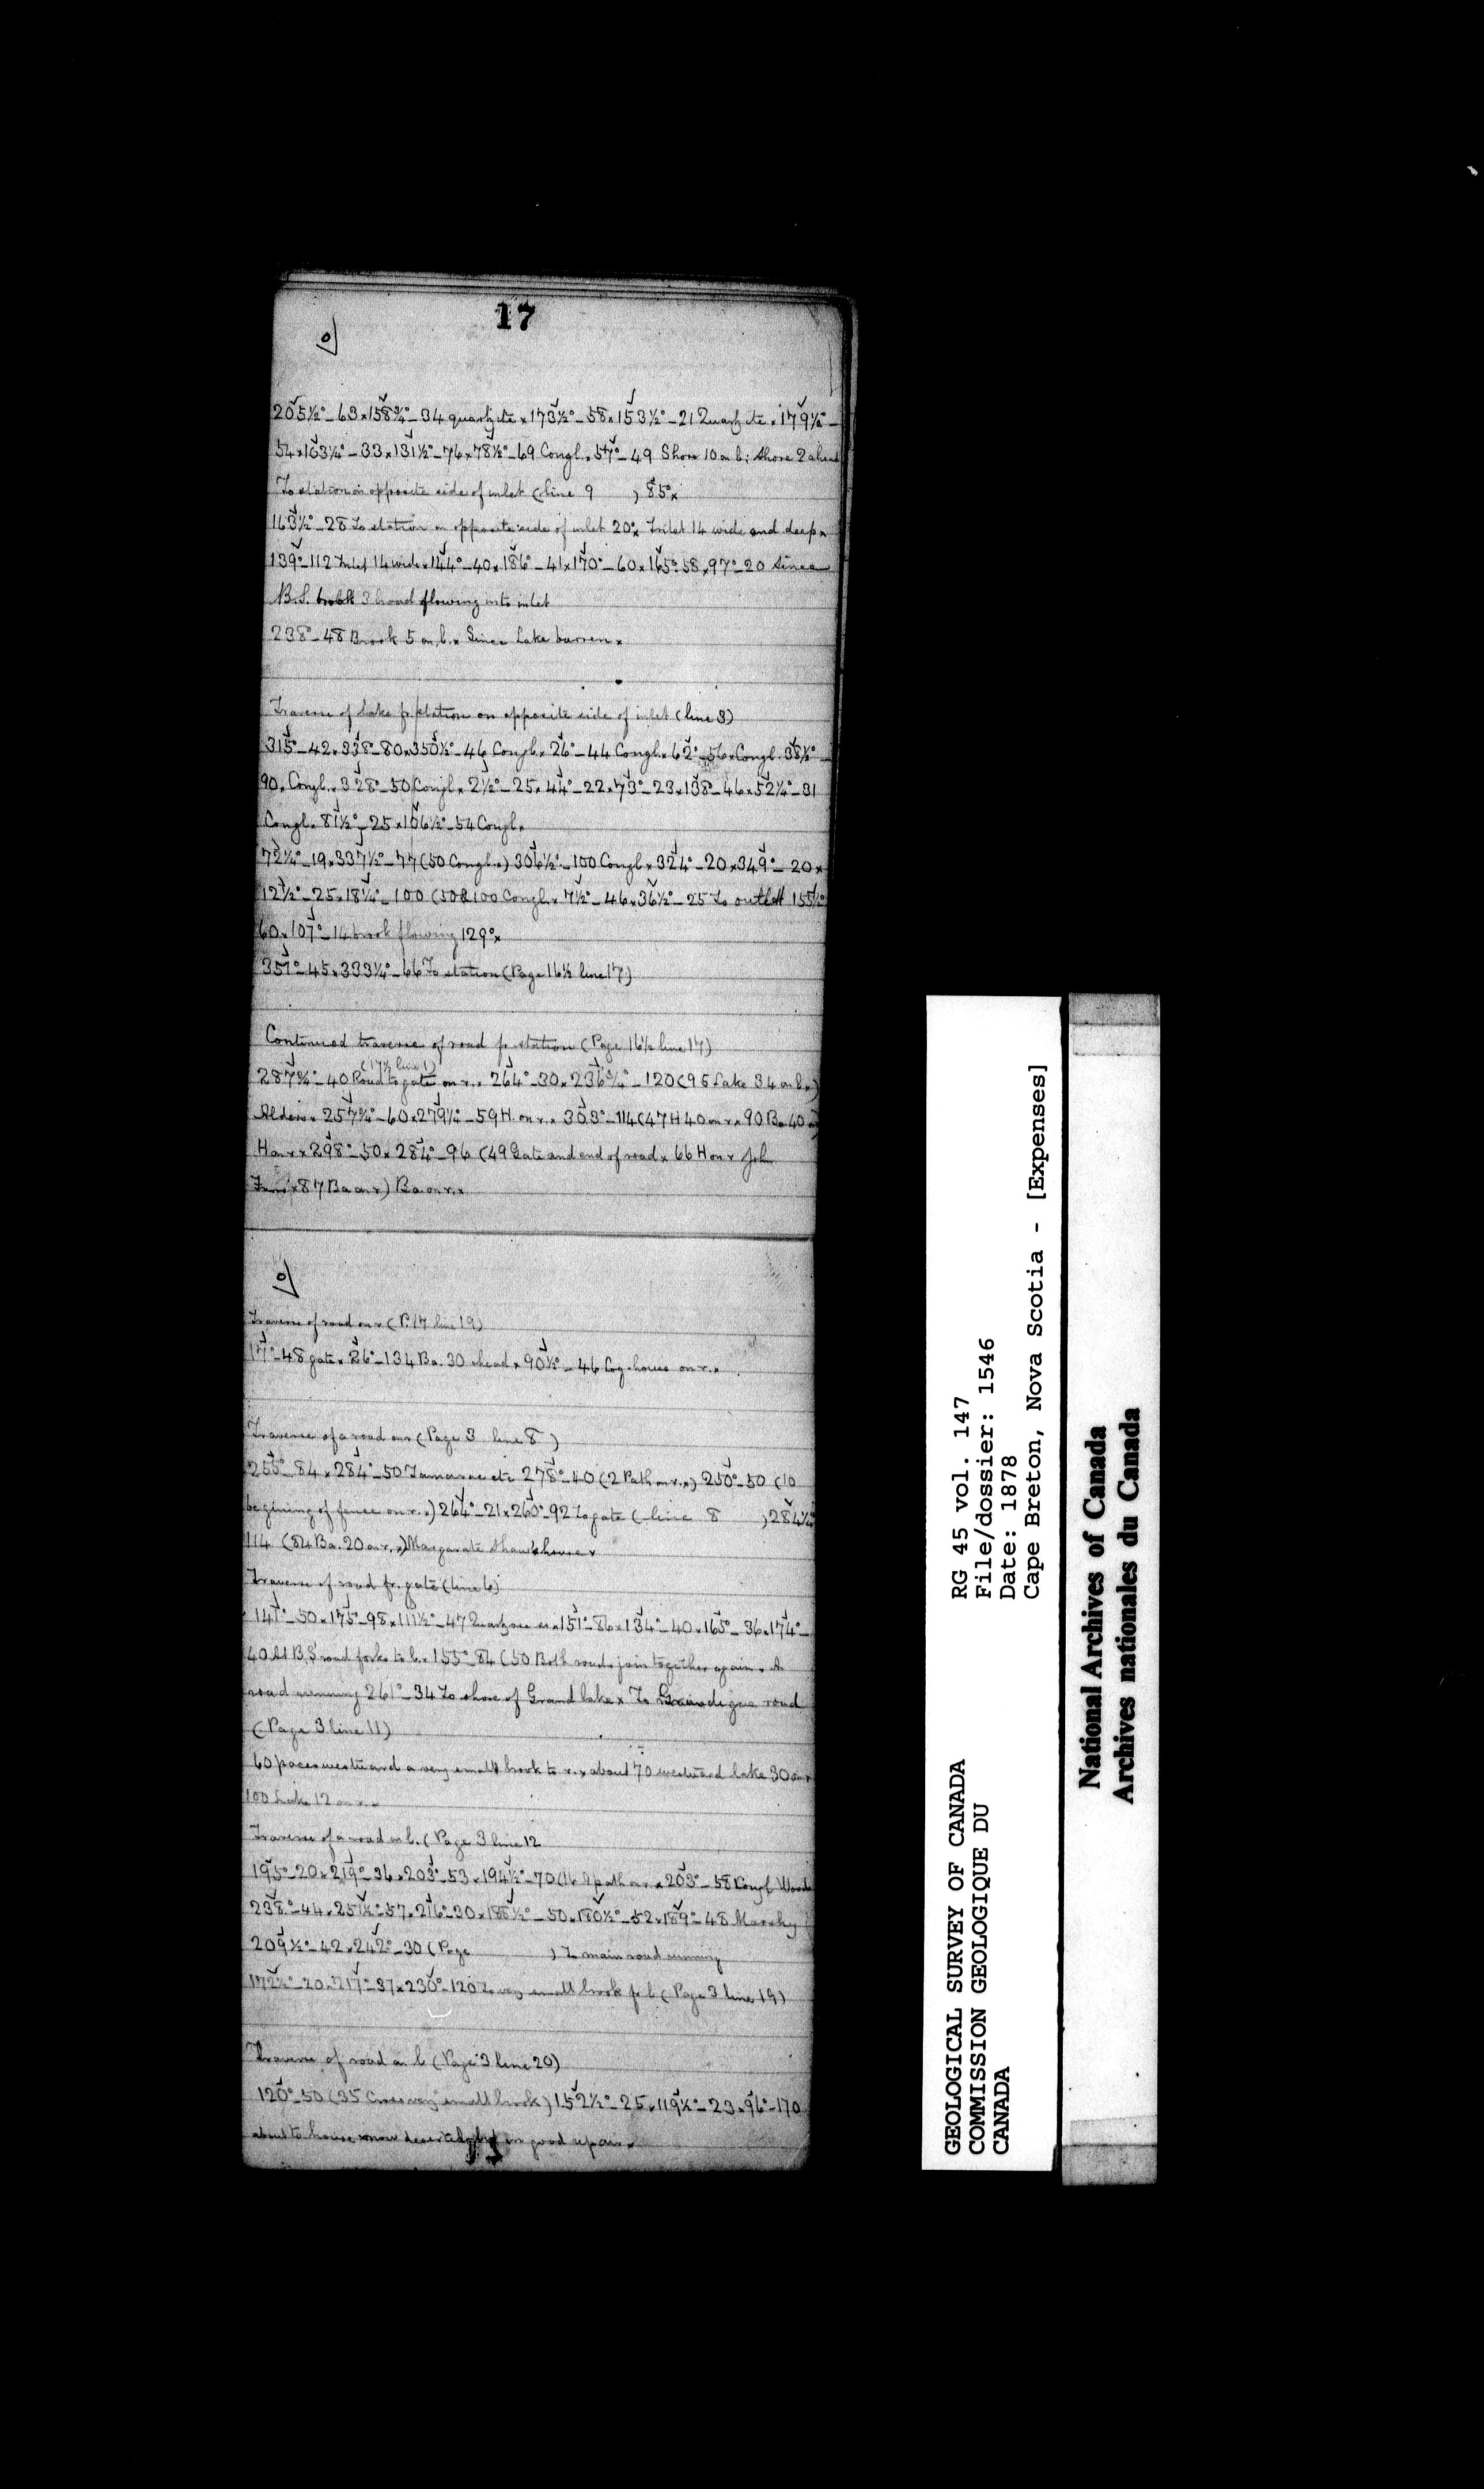 17
205½°–63×158¾°–34 quartzite×173½°–58×153½°–21 Quartzite×179½°–
54×163¼°–33×131½°–76×78½°–69 Congl.×57°–49 Shore 10 on l; shore 2 ahead
To station on opposite side of inlet (line 9 ) 85°×
163½°–28 To station on opposite side of inlet 20°× Inlet 14 wide and deep×
139°–112 Inlet 14 wide×144°–40×186°–41×170°–60×165°–58×97°–20 Since
B.S. brook 3 broad flowing into inlet
238°–48 Brook 5 on l.× Since Lake barren×
Traverse of Lake fr station on opposite side of inlet (line 3)
315°–42×338°–80×350½°–46 Congl.×26°–44 Congl.×62°–56×Congl. 38½°–
90. Congl.×328°–50 Congl×2½°–25×44°–22×73°–23×138°–46×52¼°–31
Congl.×81½°–25×106½°–54 Congl.
72¼°–19×337½°–77 (50 Congl.×) 306½°–100 Congl×324°–20×349°–20×
12½°–25×18¼°–100 (50&100 Congl.×7½°–46×36½°–25 To outlet 155½°
60×107°–14 brook flowing 129°×
357°–45×333¼°–66 To station (Page 16½ line 17)
Continued traverse of road fr station (Page 16½ line 17)
(17½ line 1)
287¾°–40 Road to gate on r.× 264°–30×236¾°–120 (95 Lake 34 on l.×)
Alders×257¾°–60×279¼°–59 H. on r.×303°–114 (47 H 40 on r×90 Ba. 40 on
H on r×298°–50×284°–96 (49 Gate and end of road×66 H on r John
×87 Ba on r) Ba on r.×
Traverse of road on r (P. 17 line 19)
17°–48 gate×26°–134 Ba. 30 ahead×90½°–46 Log house on r.×
Traverse of a road on r (Page 3 line 8 )
255°–84×284°–50 Tamarac etc 278°–40 (2 Path on r.×) 250°–50 (10
begining of fence on r.×) 264°–21×260°–92 To gate (line 8 ) 284½°
114 (84 Ba. 20 on r.×) Margarate Shaw's house×
Traverse of road fr. gate (line 6)
141°–50×175°–98×111½°–47 ×151°–86×134°–40×165°–36×174°–
40 At B.S road forks to l.×155°–84 (50 Both roads join together again. A
road running 261°–34 To shore of Grand lake× To Grandigue road
(Page 3 line 11)
60 paces westward a very small brook to r.× about 70 westward lake 30 on r
100 Lake 12 on r.×
Traverse of a road on l. (Page 3 line 12
195°–20×219°–36×203°–53×194½°–70 (16 A path on r×203°–58 Congl Woods
238°–44×251½°–57×216°–30×188½°–50×180½°–52×189°–48 Marshy
209½°–42×242°–30 (Page ) To main road running
172½°–20×217°–37×230°–120 To very small brook fr l (Page 3 line 19)
Traverse of road on l (Page 3 line 20)
120°–50 (35 Cross very small brook) 152½°–25×119½°–23×96°–170
about to house now deserted but in good repair×
GEOLOGICAL SURVEY OF CANADA
COMMISSION GEOLOGIQUE DU
CANADA
RG 45 vol. 147
File/dossier: 1546
Date: 1878
Cape Breton, Nova Scotia - [Expenses]
National Archives of Canada
Archives nationales du Canada